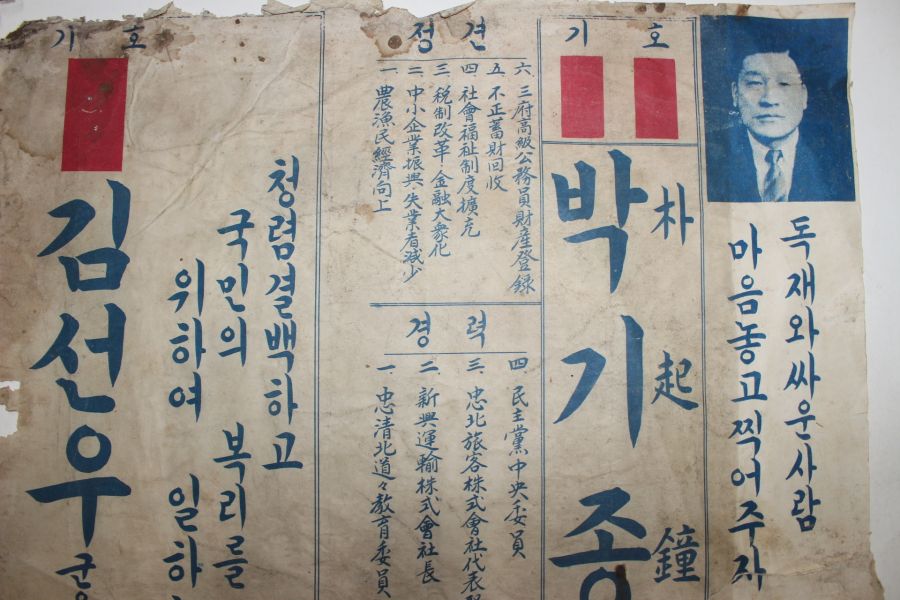 독재와싸운사람
마음놓고찍어주자
기호
朴起鐘
박기종
정견
一. 農漁民經濟向上
二. 中小企業振興·失業者減少
三. 稅制改革·金融大衆化
四. 社會福祉制度擴充
五. 不正蓄財回收
六. 三府高級公務員財産登錄
경력
一. 忠清北道々教育委員
二. 新興運輸株式會社長
三. 忠北旅客株式會社代表
四. 民主黨中央委員
기호
청렴결백하고
국민의 복리를
위하여 일하
김선우